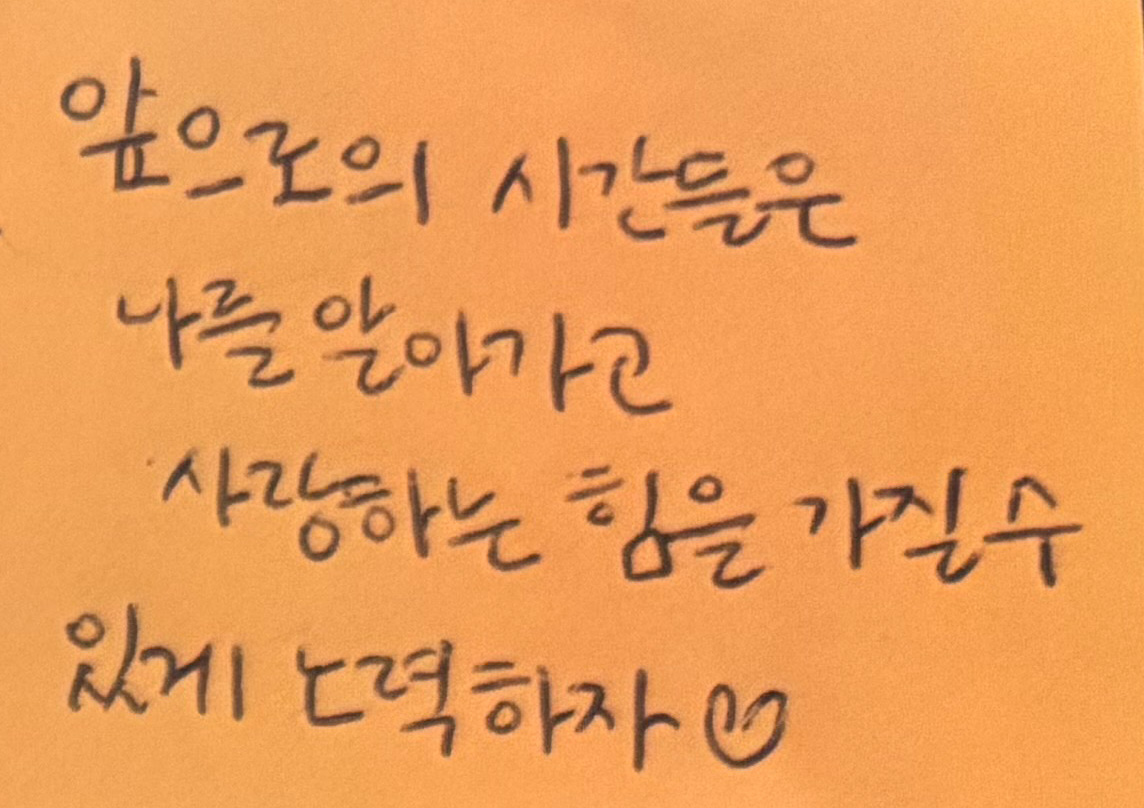 앞으로의 시간들은
나를 알아가고
사랑하는 힘을 가질 수
있게 노력하자♡